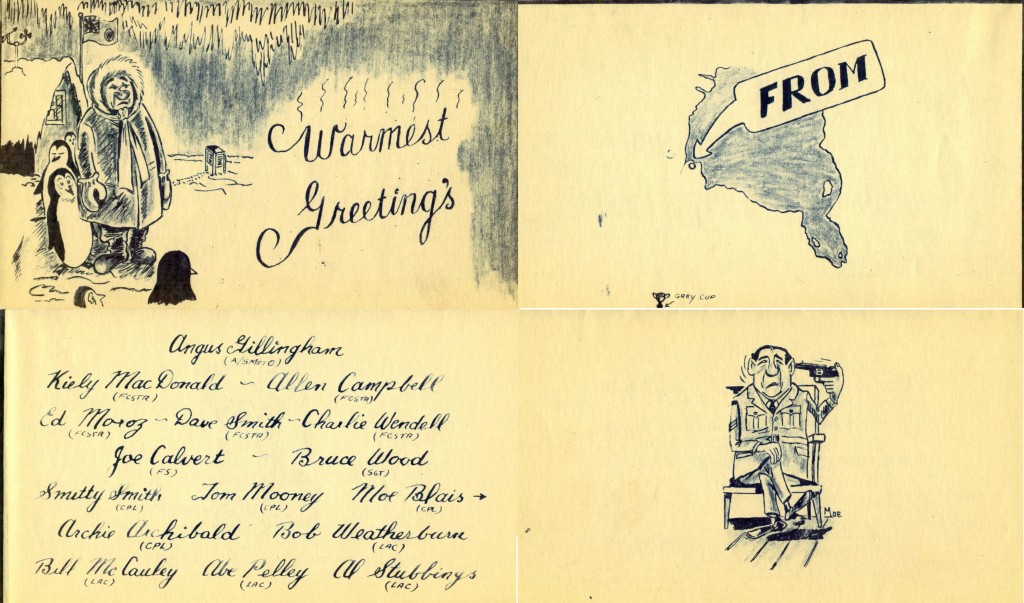 Warmest
Greeting's
FROM
GREY CUP
Angus Gillingham
(A/SMETO)
Kiely MacDonald ~ Allen Campbell
(FCSTR) (FCSTR)
Ed Moroz ~ Dave Smith ~ Charlie Wendell
(FCSTR) (FCSTR) (FCSTR)
Joe Calvert ~ Bruce Wood
(FS) (SGT)
Smitty Smith Tom Mooney Moe Blais →
(CPL) (CPL) (CPL)
Archie Archibald Bob Weatherburn
(CPL) (LAC)
Bill McCauley Abe Pelley Al Stubbings
(LAC) (LAC) (LAC)
MOE